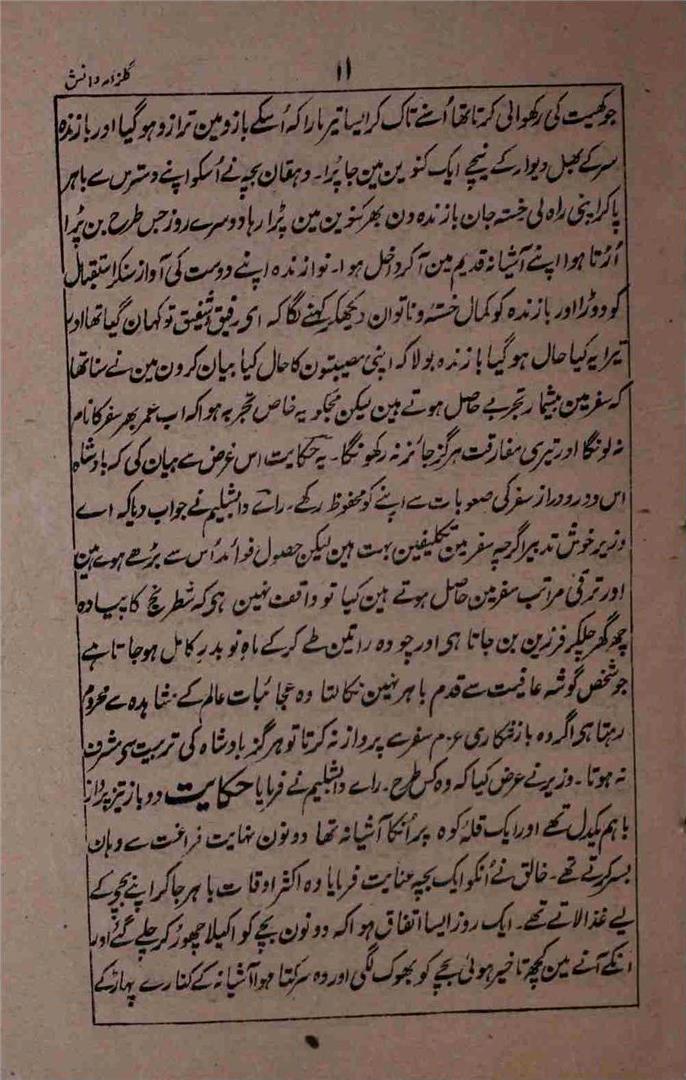 ۱۱
گلزار دانش
جو کھیت کی رکھوالی کرتا تھا اُسنے تاک کر ایسا تیر مارا کہ اُسکے بازو مین ترازو ہو گیا اور بازندہ
سر کے بھل دیوار کے نیچے ایک کنوین مین جا پڑا۔ دہقان بچہ نے اُسکو اپنے دسترس سے باہر
پا کر اپنی راہ لی خستہ جان بازندہ دن بھر کنوین مین پڑا رہا دوسرے روز جس طرح بن پڑا
اُڑتا ہوا اپنے آشیانہ قدیم مین آکر داخل ہوا۔ نوازندہ اپنے دوست کی آواز سنکر استقبال
کو دوڑا اور بازندہ کو کمال خستہ و ناتوان دیکھکر کہنے لگا کہ ای رفیق شفیق تو کہان گیا تھا اور
تیرا یہ کیا حال ہو گیا بازندہ بولا کہ اپنی مصیبتون کا حال کیا بیان کرون مین نے سنا تھا
کہ سفر مین بیشمار تجربے حاصل ہوتے ہین لیکن مجکو یہ خاص تجربہ ہوا کہ اب عمر بھر سفر کا نام
نہ لونگا اور تیری مفارقت ہرگز جائز نہ رکھونگا۔ یہ حکایت اس غرض سے بیان کی کہ بادشاہ
اس دور دراز سفر کی صعوبات سے اپنے کو محفوظ رکھے۔ راے دابشلیم نے جواب دیا کہ اے
وزیر خوش تدبیر اگرچہ سفر مین تکلیفین بہت ہین لیکن حصول فوائد اُس سے بڑھے ہوے ہین
اور ترقی مراتب سفر مین حاصل ہوتے ہین کیا تو واقف نہین ہی کہ شطرنج کا پیادہ
چھ گھر چلکر فرزین بن جاتا ہی اور چودہ راتین طے کر کے ماہِ نو بدر کامل ہو جاتا ہے
جو شخص گوشہ عافیت سے قدم باہر نہین نکالتا وہ عجائبات عالم کے مشاہدہ سے محروم
رہتا ہی اگر وہ باز شکاری عزم سفر سے پرواز نہ کرتا تو ہرگز بادشاہ کی تربیت سی مشرف
نہ ہوتا۔ وزیر نے عرض کیا کہ وہ کس طرح۔ راے دابشلیم نے فرمایا حکایت دو باز تیز پرواز
باہم یکدل تھے اور ایک قلۂ کوہ پر اُنکا آشیانہ تھا دونون نہایت فراغت سے وہان
بسر کرتے تھے۔ خالق نے اُنکو ایک بچہ عنایت فرمایا وہ اکثر اوقات باہر جا کر اپنے بچے کے
لیے غذا لاتے تھے۔ ایک روز ایسا اتفاق ہوا کہ دونون بچے کو اکیلا چھوڑ کر چلے گئے اور
انکے آنے مین کچھ تاخیر ہوئی بچے کو بھوک لگی اور وہ سرکتا ہوا آشیانہ کے کنارے پہاڑ کے